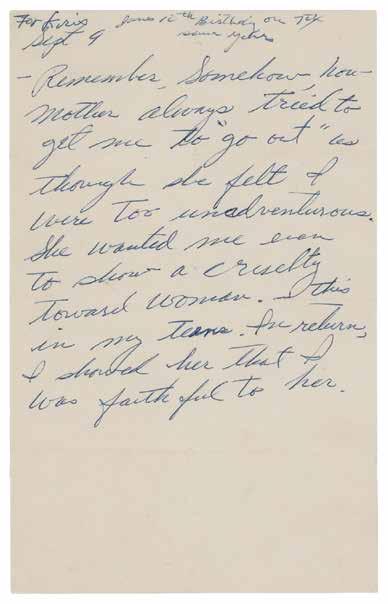 For Kris Jane's 12th Birthday on TX
Sept 9 same years
- Remember, Somehow, how
mother always tried to
get me to "go out" as
though she felt I
were too unadventurous.
She wanted me even
to show a cruelty
toward woman. - This
in my teens. In return,
I showed her that I
was faithful to her.